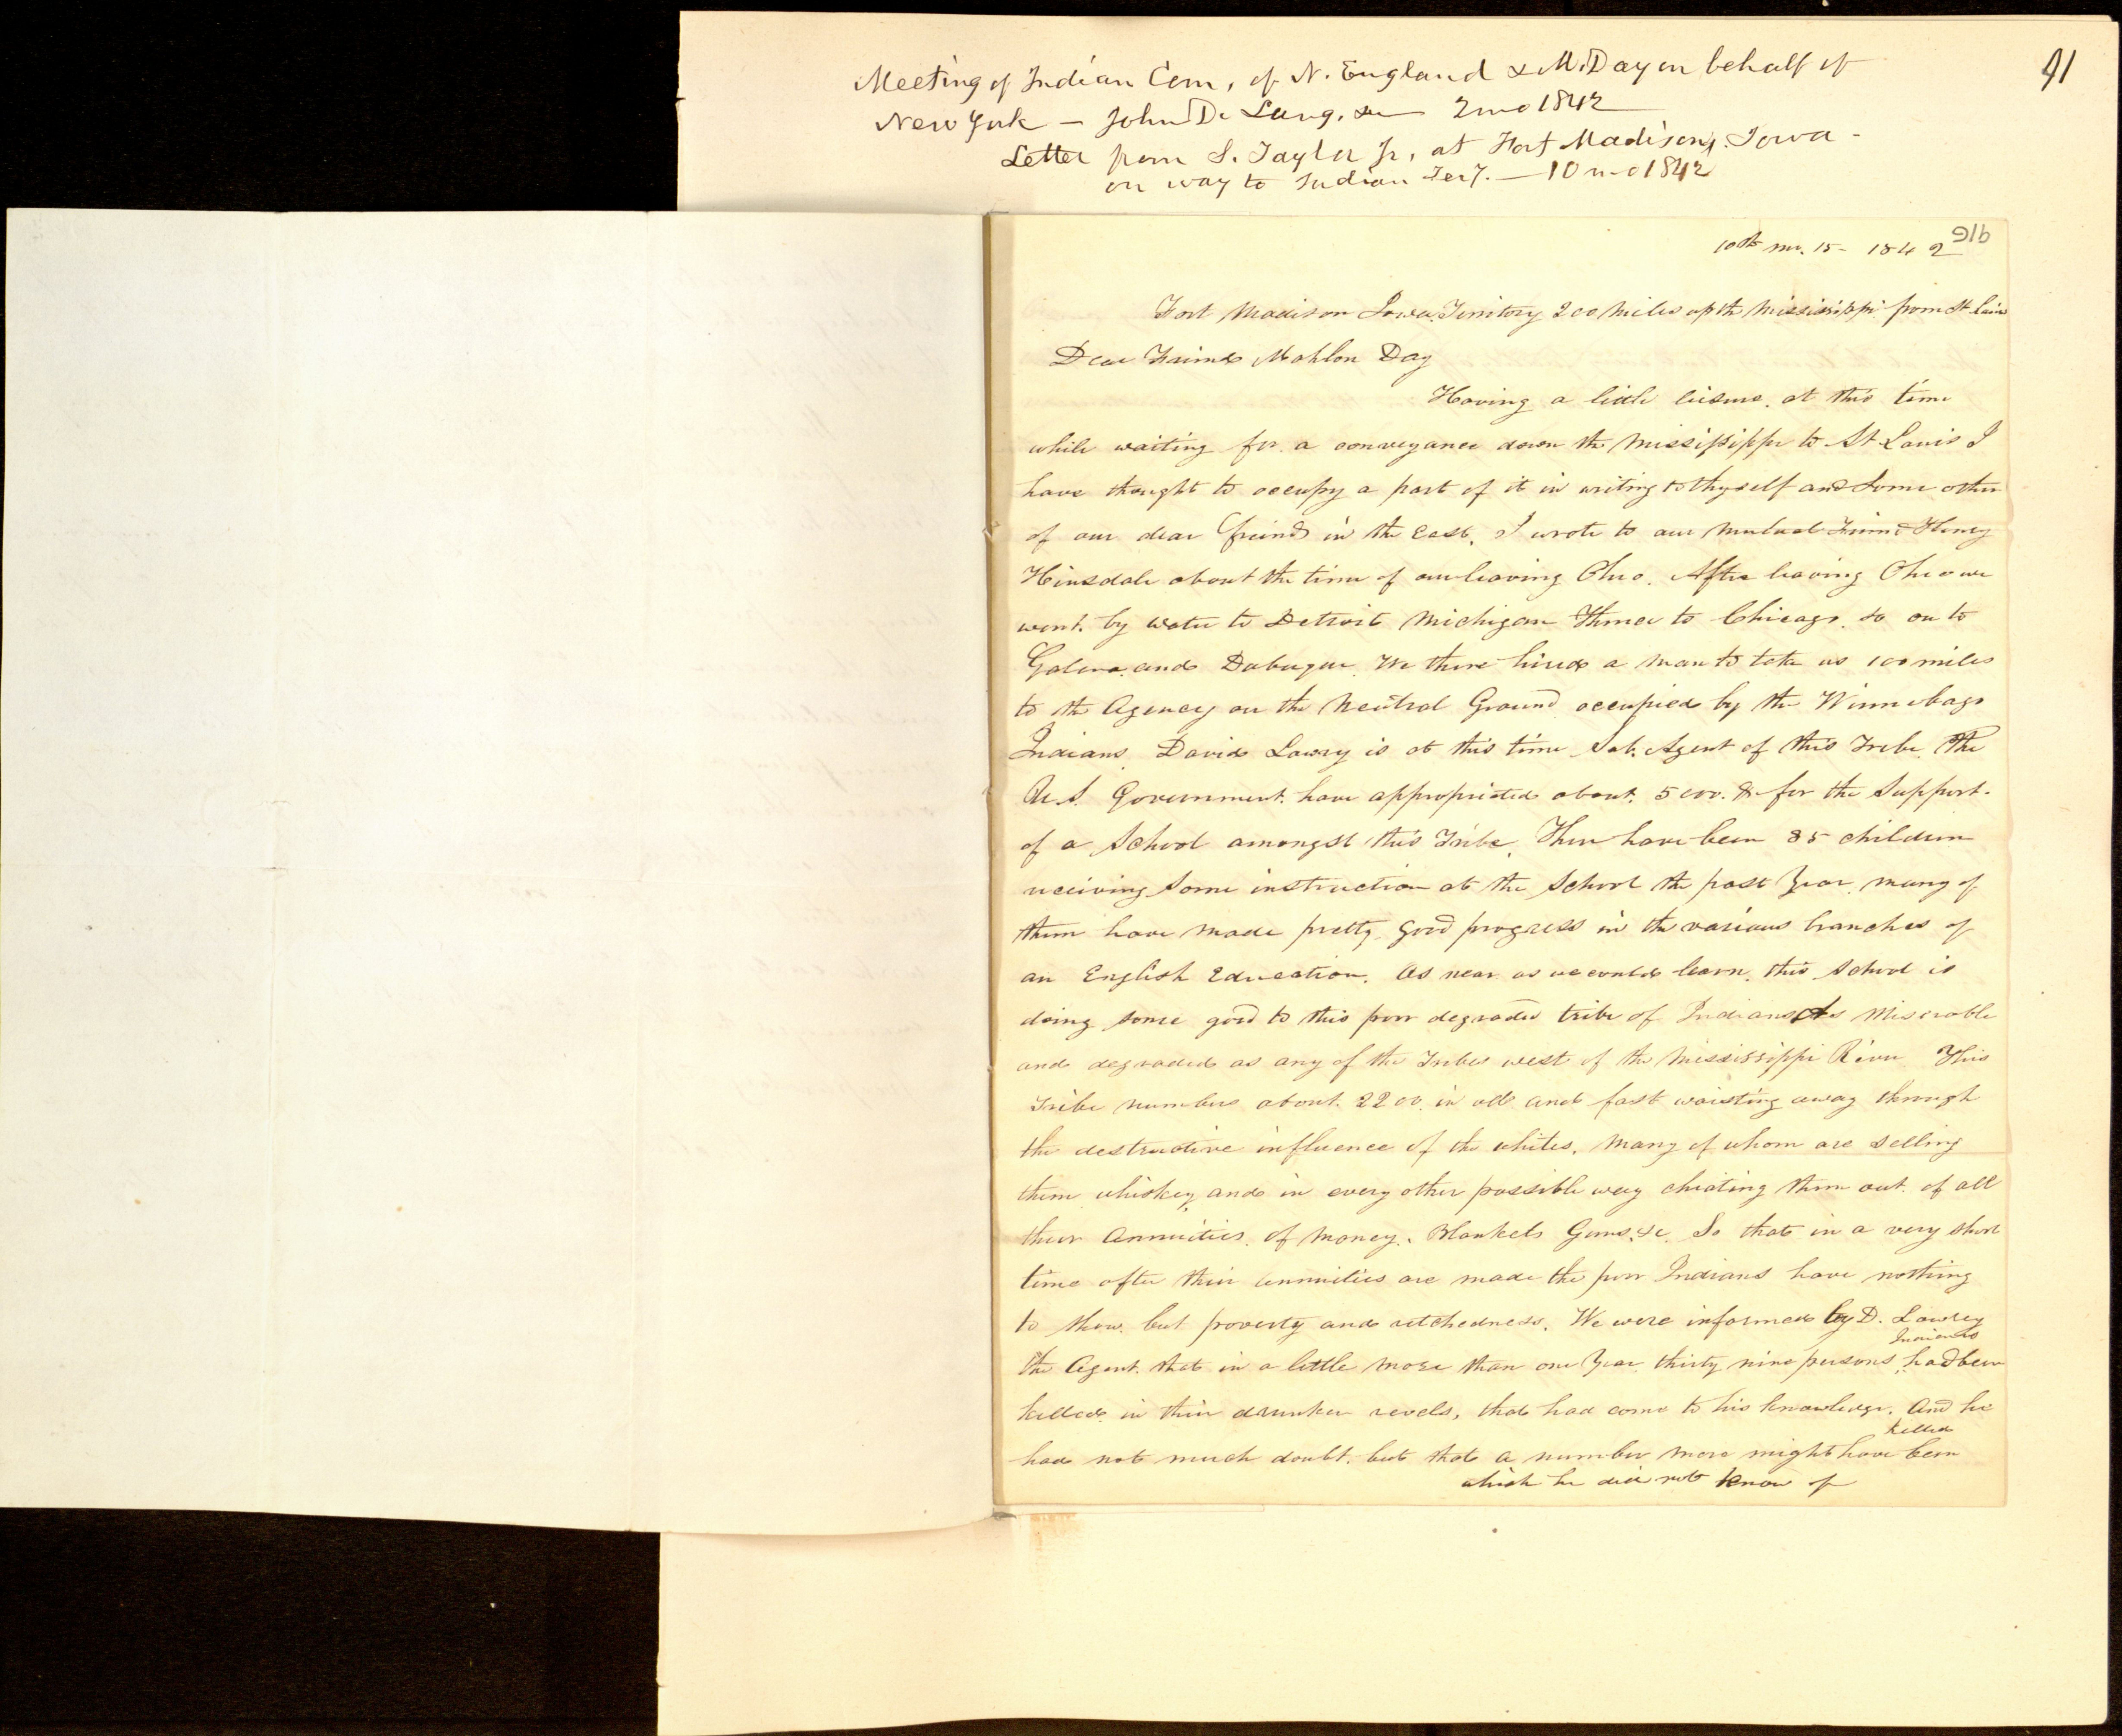 Meeting of Indian Com, of N. England & M. Day on behalf of
New York – John D. Lang, 2 mo 1842
Letter from S. Taylor Jr, at Fort Madison, Iowa –
on way to Indian Ter'y. – 10 mo 1842
91
91b
10th mo. 15 – 1842
Fort Madison Iowa Territory 200 Miles up the Mississippi from St Louis
Dear Friend Mahlon Day
Having a little leisure at this time
while waiting for a conveyance down the Mississippi to St Louis I
have thought to occupy a part of it in writing to thyself and some other
of our dear friends in the East. I wrote to our Mutual Friend Henry
Hinsdale about the time of our leaving Ohio. After leaving Ohio we
went by water to Detroit Michigan Thence to Chicago so on to
Galena and Dubuque We there hired a man to take us 100 miles
to the Agency on the Neutral Ground occupied by the Winnebago
Indians David Lowry is at this time Sub. Agent of this Tribe The
U.S. Government have appropriated about 5000 for the Support
of a School amongst this Tribe Their have been 85 children
receiving some instruction at the School the past Year many of
them have made pretty good progress in the various branches of
an English Education. As near as we could learn this School is
doing some good to this poor degraded tribe of Indians As Miserable
and degraded as any of the Tribes west of the Mississippi River This
Tribe numbers about 2200 in all and fast waisting away through
the destructive influence of the whites, many of whom are selling
them whiskey and in every other possible way cheating them out of all
their Annuities of Money. Blankets Guns &c. So that in a very short
time after their annuities are made the poor Indians have nothing
to show but poverty and retchedness. We were informed by D. Lowrey
the Agent that in a little more than one Year thirty nine persons Indians had been
killed in their drunken revels, that had come to his knowledge. And he
had not much doubt but that a number more might have been killed
which he did not know of